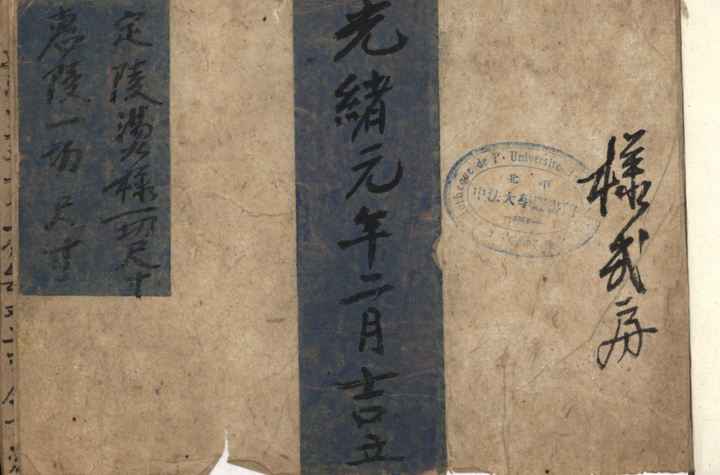 樣式房
光緒元年二月吉立
定陵燙樣一切尺寸
惠陵一切尺寸
thèque de l'Université
北平
中法大學圖書館